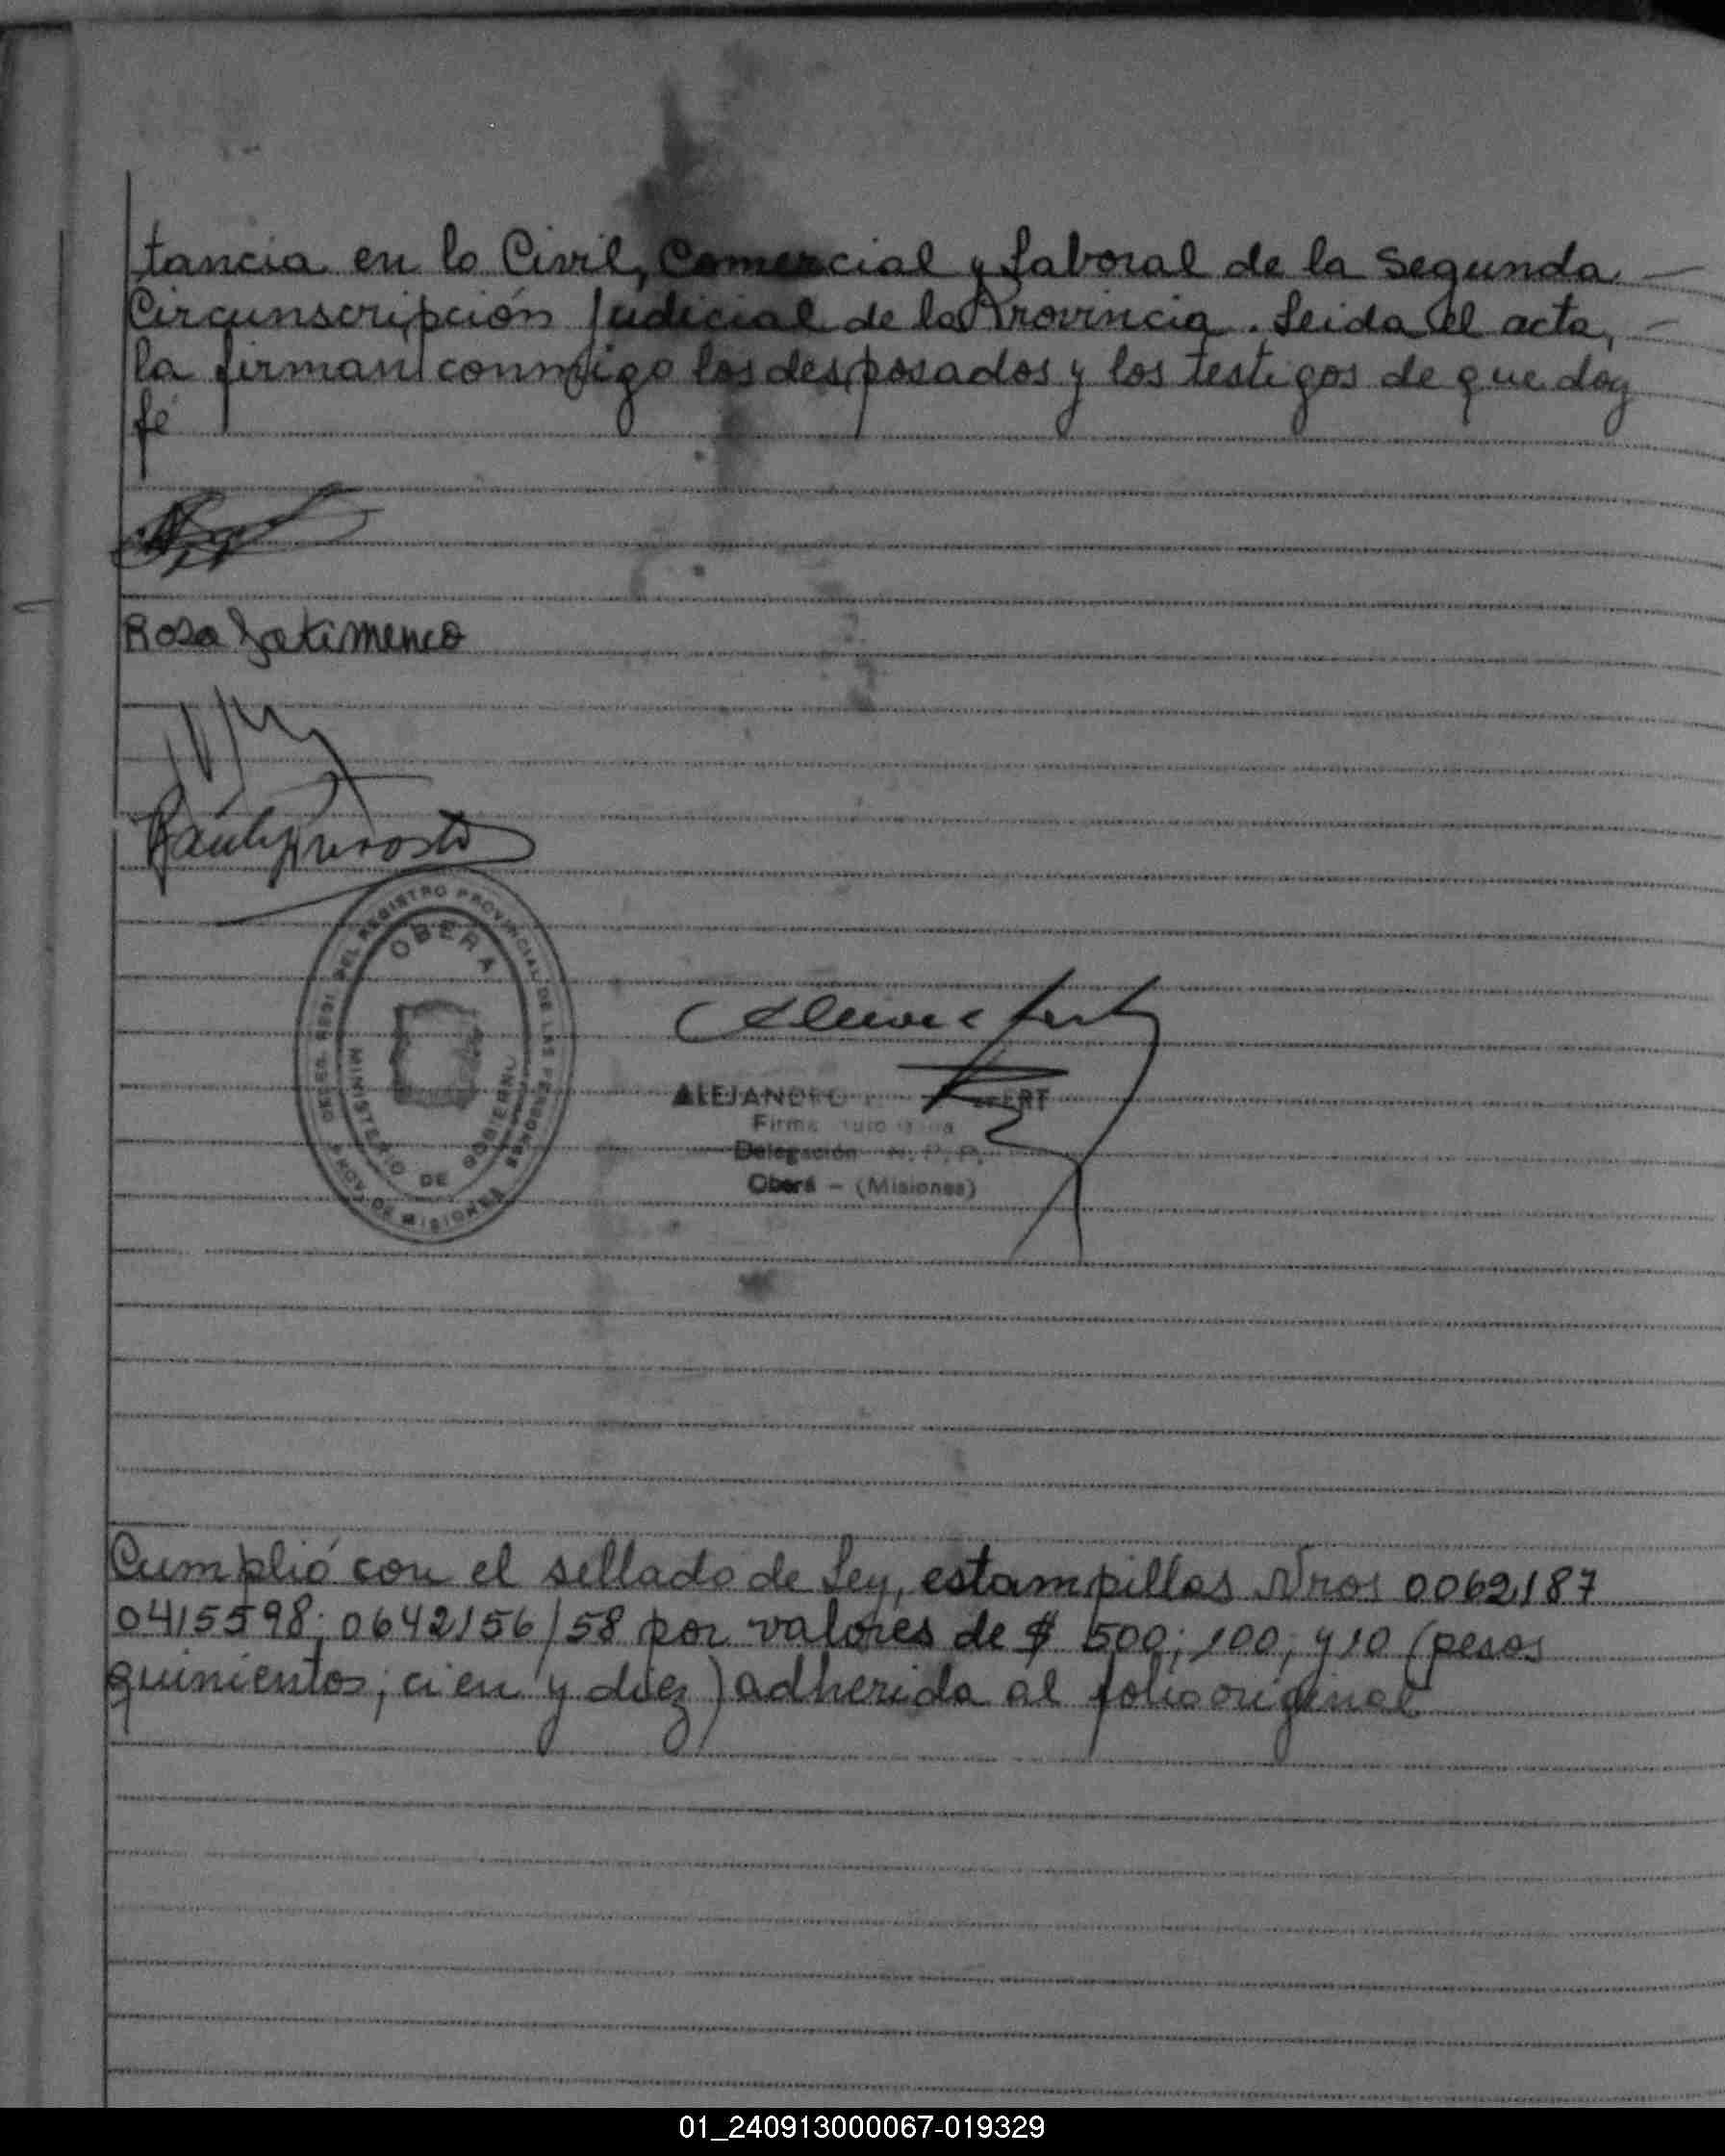 tancia en lo Civil, Comercial y Laboral de la Segunda —
Circunscripción Judicial de la Provincia. Leida el acta, —
la firman conmigo los desposados y los testigos de que doy
fé
Rosa
DEL REGISTRO PROVINCIAL DE LAS PERSONAS
OBERA
MINISTERIO DE GOBIERNO
PROV. DE MISIONES
ALEJANDRO
Firma
Delegación R. P. P.
Oberá - (Misiones)
Cumplió con el sellado de Ley, estampillas Nros 0062187
0415598; 0642156/58 por valores de $ 500; 100; y 10 (pesos
quinientos; cien y diez) adherida al folio original
01_240913000067-019329